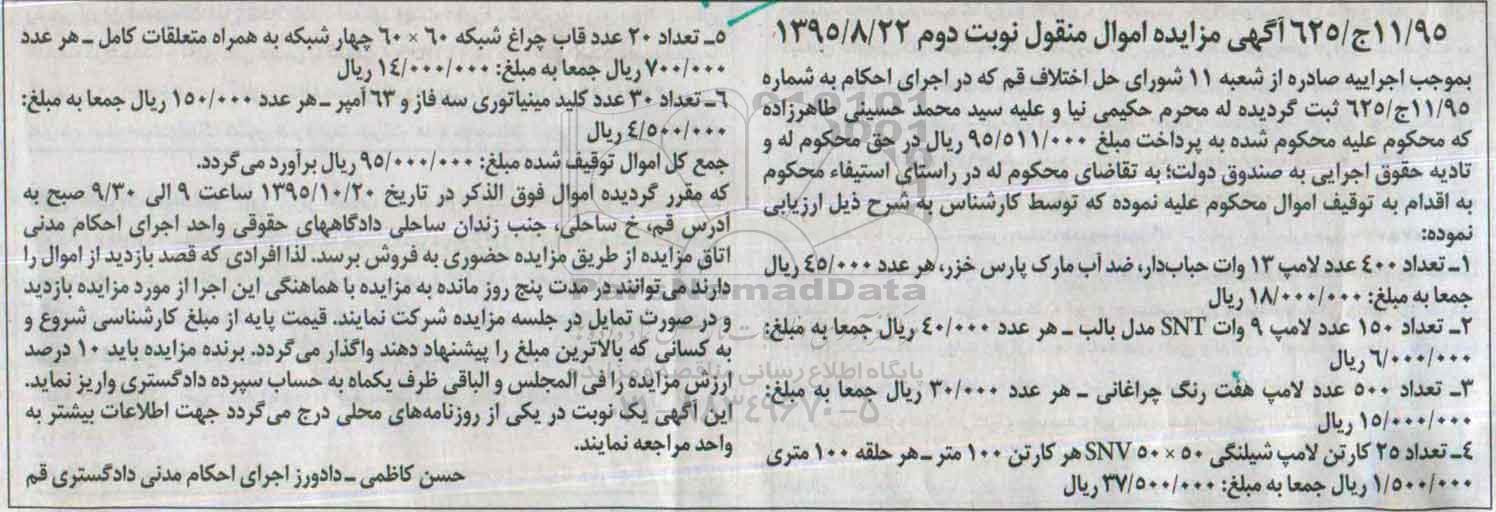 ۱۱/۹۵ج/۶۲۵ آگهی مزایده اموال منقول نوبت دوم ۱۳۹۵/۸/۲۲
بموجب اجراییه صادره از شعبه ۱۱ شورای حل اختلاف قم که در اجرای احکام به شماره
۱۱/۹۵ج/۶۲۵ ثبت گردیده له محرم حکیمی نیا و علیه سید محمد حسینی طاهرزاده
که محکوم علیه محکوم شده به پرداخت مبلغ ۹۵/۵۱۱/۰۰۰ ریال در حق محکوم له و
تادیه حقوق اجرایی به صندوق دولت؛ به تقاضای محکوم له در راستای استیفاء محکوم
به اقدام به توقیف اموال محکوم علیه نموده که توسط کارشناس به شرح ذیل ارزیابی
نموده:
۱ـ تعداد ۴۰۰ عدد لامپ ۱۳ وات حباب‌دار، ضد آب مارک پارس خزر، هر عدد ۴۵/۰۰۰ ریال
جمعا به مبلغ: ۱۸/۰۰۰/۰۰۰ ریال
۲ـ تعداد ۱۵۰ عدد لامپ ۹ وات SNT مدل بالب ـ هر عدد ۴۰/۰۰۰ ریال جمعا به مبلغ:
۶/۰۰۰/۰۰۰ ریال
۳ـ تعداد ۵۰۰ عدد لامپ هفت رنگ چراغانی ـ هر عدد ۳۰/۰۰۰ ریال جمعا به مبلغ:
۱۵/۰۰۰/۰۰۰ ریال
۴ـ تعداد ۲۵ کارتن لامپ شیلنگی ۵۰ × ۵۰ SNV هر کارتن ۱۰۰ متر ـ هر حلقه ۱۰۰ متری
۱/۵۰۰/۰۰۰ ریال جمعا به مبلغ: ۳۷/۵۰۰/۰۰۰ ریال
۵ـ تعداد ۲۰ عدد قاب چراغ شبکه ۶۰ × ۶۰ چهار شبکه به همراه متعلقات کامل ـ هر عدد
۷۰۰/۰۰۰ ریال جمعا به مبلغ: ۱۴/۰۰۰/۰۰۰ ریال
۶ـ تعداد ۳۰ عدد کلید مینیاتوری سه فاز و ۶۳ آمپر ـ هر عدد ۱۵۰/۰۰۰ ریال جمعا به مبلغ:
۴/۵۰۰/۰۰۰ ریال
جمع کل اموال توقیف شده مبلغ: ۹۵/۰۰۰/۰۰۰ ریال برآورد می‌گردد.
که مقرر گردیده اموال فوق الذکر در تاریخ ۱۳۹۵/۱۰/۲۰ ساعت ۹ الی ۹/۳۰ صبح به
آدرس قم، خ ساحلی، جنب زندان ساحلی دادگاههای حقوقی واحد اجرای احکام مدنی
اتاق مزایده از طریق مزایده حضوری به فروش برسد. لذا افرادی که قصد بازدید از اموال را
دارند می‌توانند در مدت پنج روز مانده به مزایده با هماهنگی این اجرا از مورد مزایده بازدید
و در صورت تمایل در جلسه مزایده شرکت نمایند. قیمت پایه از مبلغ کارشناسی شروع و
به کسانی که بالاترین مبلغ را پیشنهاد دهند واگذار می‌گردد. برنده مزایده باید ۱۰ درصد
ارزش مزایده را فی المجلس و الباقی ظرف یکماه به حساب سپرده دادگستری واریز نماید.
این آگهی یک نوبت در یکی از روزنامه‌های محلی درج می‌گردد جهت اطلاعات بیشتر به
واحد مراجعه نمایند.
حسن کاظمی ـ دادورز اجرای احکام مدنی دادگستری قم
ParsNamadData
پایگاه اطلاع رسانی مناقصه و مزایده